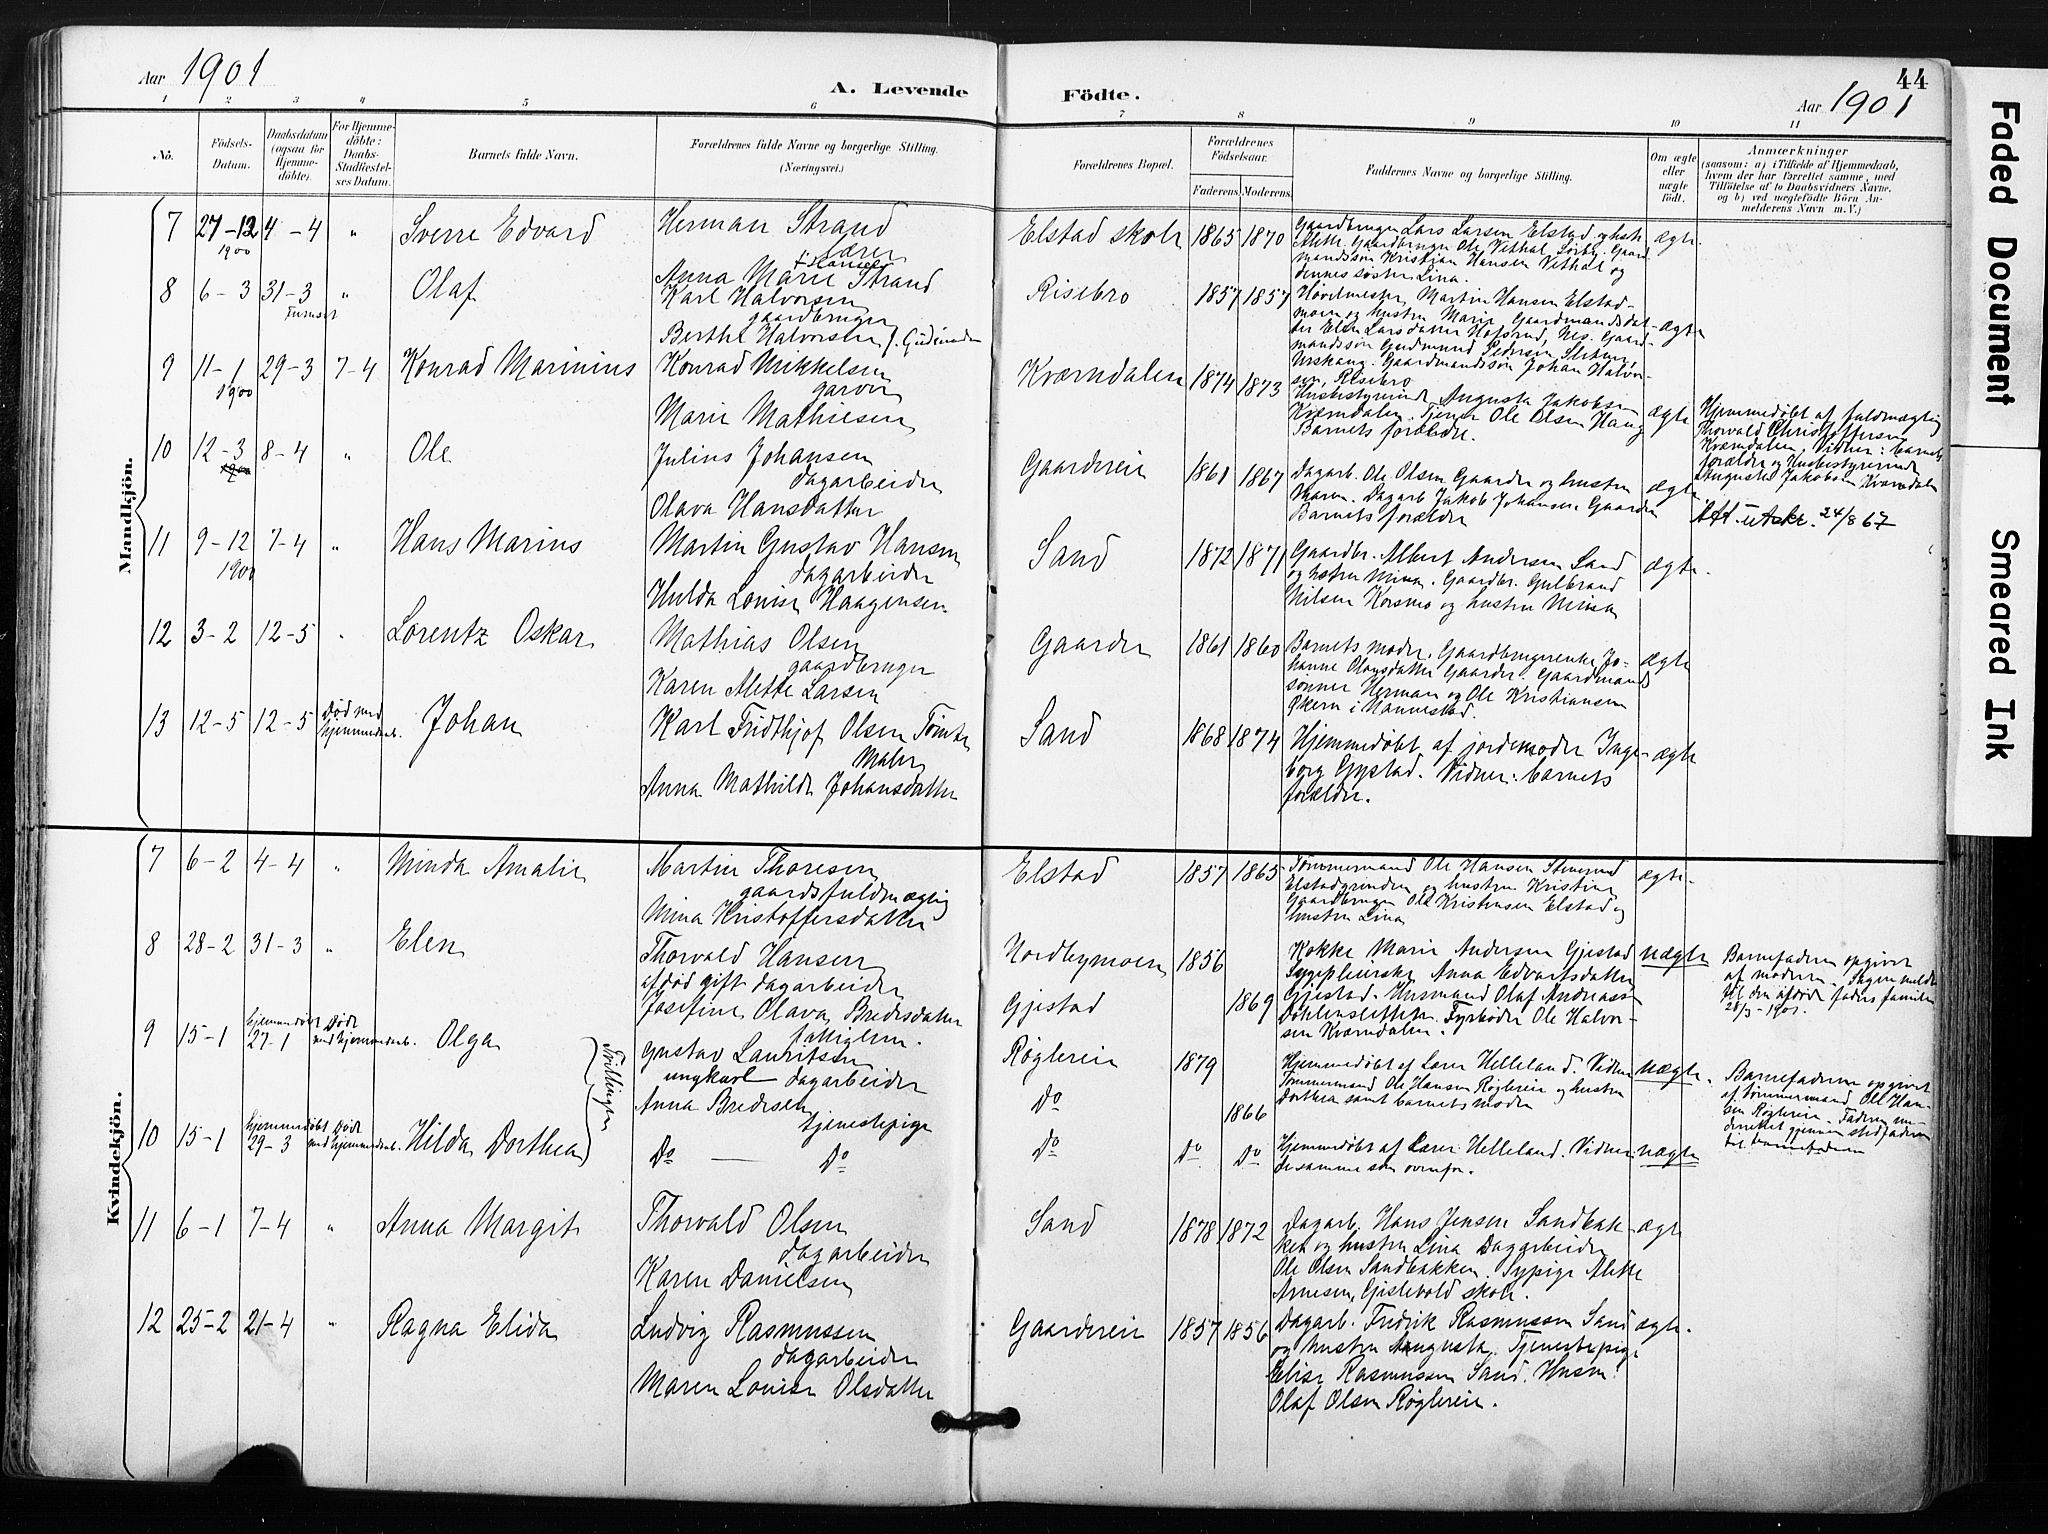 Aar 1901
A. Levende
Födte.
44
Aar 1901
1 2 3 4 5 6 7 8 9 10 11
No.
Födsels-
Datum.
Daabsdatum
(ogsaa for
Hjemme-
döbte).
For Hjemme-
döbte:
Daabs-
Stadfæstel-
ses Datum.
Barnets fulde Navn.
Forældrenes fulde Navne og borgerlige Stilling.
(Næringsvei.)
Forældrenes Bopæl.
Forældrenes
Födselsaar.
Faderens. Moderens.
Faddernes Navne og borgerlige Stilling.
Om ægte
eller
uægte
födt.
Anmærkninger
(saasom: a) i Tilfælde af Hjemmedaab,
hvem der har forrettet samme, med
Tilföielse af to Daabsvidners Navne.
og b) ved uægtefödte Börn An-
melderens Navn m.V.)
Mandkjön.
7 27-12 1900 4-4 " Sverre Edvard
Herman Strand
lærer
Anna Marie Strand
Elstad skole 1865 1870
Gaardbruger Lars Larsen Elstad og hstr
Alette. Gaardbruger Ole Vethal Lørby. Gaard
mandssøn Kristian Hansen Vethal og
dennes søster Lina.
ægte
8 6-3 31-3 Furuset " Olaf
Karl Halvorsen
gaardbruger
Berthe Halvorsen f. Gudmunds
Risebro 1857 1857
Høvelmester Martin Hansen Elstad-
moen og hustru Marie. Gaardmandsdat-
ter Elen Larsdatter Hofsrud, Nes. Gaard-
mandssøn Gudmund Pedersen
Urskoug. Gaardmandssøn Johan Halvor-
sen, Risebro
ægte
9 11-1 1900 29-3 7-4 Konrad Marinius
Konrad Mikkelsen
garver
Marie Mathiesen
Kværndalen 1874 1873
Husbestyrerinde Augusta Jakobsen
Kværndalen. Tjener Ole Olsen Haug
Barnets forældre.
ægte
Hjemmedøbt af fuldmægtig
Thorvald Christoffersen
Kværndalen, Vidner: barnets
forældre og Husbestyrerinde
Augusta Jakobsen Kværndalen
10 12-3 1900 8-4 " Ole
Julius Johansen
dagarbeider
Olava Hansdatter
Gaardereie 1861 1867
Dagarb. Ole Olsen Gaarder og hustru
Maren. Dagarb. Jakob Johansen, Gaarder
Barnets forældre
ægte
Att. utskr. 24/8 67
11 9-12 1900 7-4 " Hans Marius
Martin Gustav Hansen
dagarbeider
Hulda Louise Haagensen
Sand 1872 1871
Gaardbr. Albert Andersen Sand
og hustru Mina. Gaardbr. Gulbrand
Nilsen Korsmo og hustru Mina
ægte.
12 3-2 12-5 " Lorentz Oskar
Mathias Olsen
gaardbruger
Karen Alette Larsen
Gaarder 1861 1860
Barnets moder. Gaardbrugerenke Jo-
hanne Olausdatter Gaarder. Gaardmands
sønner Herman og Ole Kristiansen
Økern i Nannestad.
ægte
13 12-5 12-5 Død med
hjemmedaab. Johan
Karl Fridthjof Olsen Tømte
Maler
Anna Mathilde Johansdatter
Sand 1868 1874
Hjemmedøbt af jordemoder Inge-
borg Gystad. Vidner: barnets
forældre.
ægte
Kvindekjön.
7 6-2 4-4 " Minda Amalie
Martin Thoresen
gaardsfuldmægtig
Mina Kristoffersdatter
Elstad 1857 1865
Tømmermand Ole Hansen Stensrud
Elstadgrinden og hustru Kristine
Gaardbruger Ole Kristensen Elstad og
hustru Lina
ægte.
8 28-2 31-3 " Elen
Thorvald Hansen
afdød gift dagarbeider
Josefine Olava Bredesdatter
fattiglem.
Nordbymoen 1856
Gjestad 1869
Kokke Marie Andersen Gjestad
Sygepleierske Anna Edvartsdatter
Gjestad. Husmand Olaf Andreass
Døhlenslettet. Fyrbøder Ole Halvor-
sen Kværndalen.
uægte
Barnefaderen opgivet
af moderen. Skr. meldt
til den afdøde faders familie
28/3-1901.
9 15-1 hjemmedøbt 27-1 Død
med hjemmedaab. Olga
Trillinger
Gustav Lauritsen
ungkarl dagarbeider
Anna Bredesen
tjenestepige
Røglereie 1879
Do 1866
Hjemmedøbt af Lærer Helleland. Vidner
Tømmermand Ole Hansen Røglereie og hustru
Dorthea samt barnets moder
uægte.
Barnefaderen opgivet
af Tømmermand Ole Han-
sen Røglereie. Faderen un-
derrettet gjennem stedfaderen
til barnefaderen
10 15-1 hjemmedøbt 29-3 Død
med hjemmedaab. Hilda Dorthea
Do — Do
Do Do Do
Hjemmedøbt af Lærer Helleland. Vidner:
de samme som ovenfor.
uægte
11 6-1 7-4 " Anna Margit
Thorvald Olsen
dagarbeider
Karen Danielsen
Sand 1878 1872
Dagarb. Hans Jensen Sandbak-
ken og hustru Lina Dagarbeider
Ole Olsen Sandbakken. Sypige Alette
Arnesen, Gislevold skole.
ægte
12 25-2 21-4 " Ragna Elida
Ludvig Rasmussen
dagarbeider
Maren Louise Olsdatter
Gaardereie 1857 1856
Dagarb. Fredrik Rasmussen Sand
og hustru Augusta. Tjenestepige
Elise Rasmussen Sand. Husm.
Olaf Olsen Røglereie.
ægte.
Faded Document
Smeared Ink